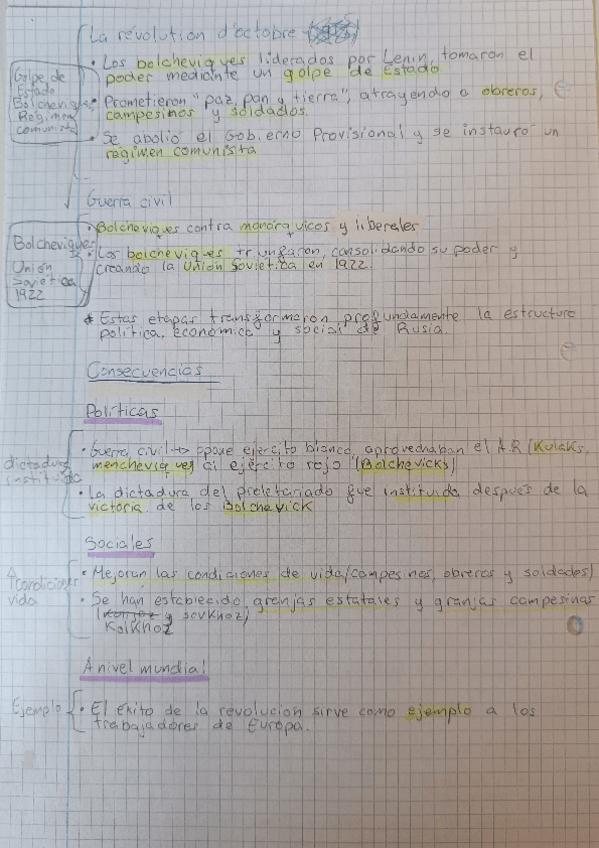 La révolution d'octobre
Golpe de
Estado
Bolchevique
Régimen
comunista
• Los bolcheviques liderados por Lenin, tomaron el
poder mediante un golpe de Estado
• Prometieron "paz, pan y tierra", atrayendo a obreros,
campesinos y soldados.
• Se abolió el Gobierno Provisional y se instauró un
régimen comunista
Guerra civil
Bolcheviques
Unión
Soviética
1922
• Bolcheviques contra monárquicos y liberales
• Los bolcheviques triunfaron, consolidando su poder y
creando la Unión Soviética en 1922.
* Estas etapas transformaron profundamente la estructura
política, económica y social de Rusia.
Consecuencias
Políticas
dictadura
instituida
• Guerra civil → opone ejercito blanco aprovechaban el A.R (Kulaks,
mencheviques) al ejército rojo (Bolchevicks)
• La dictadura del proletariado fue instituida después de la
victoria de los Bolchevick
Sociales
condiciones
vida
• Mejoran las condiciones de vida (campesinos, obreros y soldados)
• Se han establecido granjas estatales y granjas campesinas
y sovkhoz)
Kolkhoz
A nivel mundial
Ejemplo
• El éxito de la revolución sirve como ejemplo a los
trabajadores de Europa.